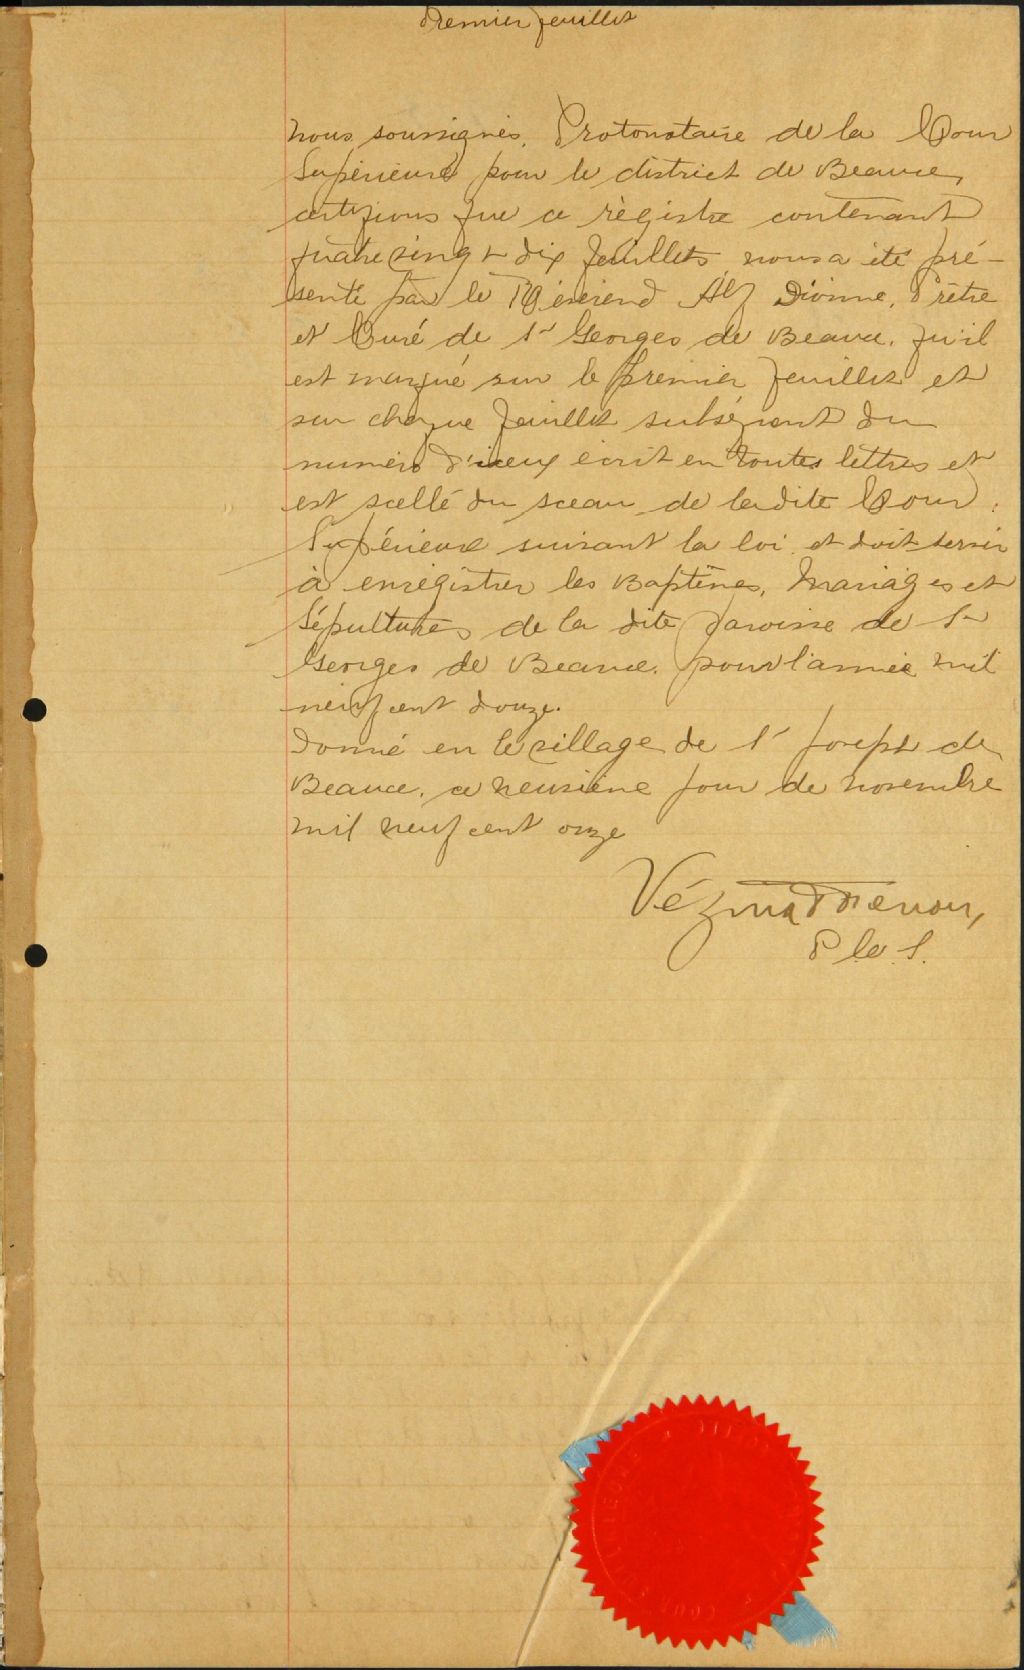 Premier feuillet
Nous, soussignés, Protonotaire de la Cour
Supérieure pour le district de Beauce,
certifions que ce régistre contenant
quatre vingt dix feuillets nous a été pré-
senté par le Révérend Alf Dionne, Prêtre
et Curé de St Georges de Beauce, qu'il
est marqué sur le premier feuillet et
sur chaque feuillet subséquent du
numéro d'iceux écrit en toutes lettres et
est scellé du sceau de la dite Cour
Supérieure suivant la loi et doit servir
à enrégistrer les Baptêmes, Mariages et
Sépultures de la dite Paroisse de St
Georges de Beauce, pour l'année mil
neuf cent douze.
Donné en le village de St Joseph de
Beauce, ce neuvième jour de novembre
mil neuf cent onze
Vézina
P. C. S.
COUR